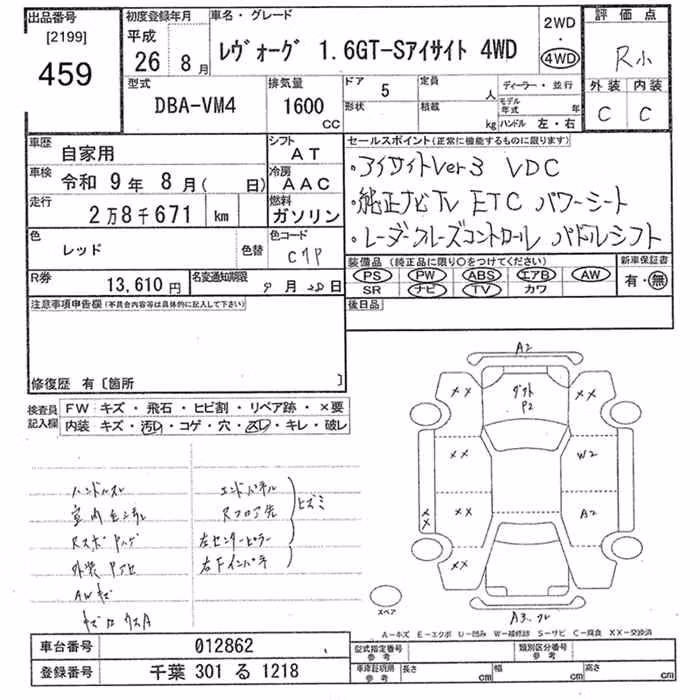 出品番号
[2199]
459
初度登録年月
平成
26 8月
車名・グレード
レヴォーグ 1.6GT-Sアイサイト 4WD
2WD
・
4WD
評価点
R小
外装 内装
C C
型式
DBA-VM4
排気量
1600
CC
ドア 5
形状
定員 人
積載 kg
ディーラー・並行
モデル年式 年
ハンドル 左・右
車歴
自家用
シフト
AT
車検 令和 9年 8月( 日)
冷房
AAC
走行
2万8千671 km
燃料
ガソリン
色
レッド
色替
色コード
C7P
R券
13,610円
名変通知期限
9月28日
セールスポイント(正常に機能するものに限ります)
・アイサイトVer3 VDC
・純正ナビTV ETC パワーシート
・レーダークルーズコントロール パドルシフト
装備品(純正品に限り○をつけてください)
PS PW ABS エアB AW
SR ナビ TV カワ
新車保証書
有・無
後日品
注意事項申告欄(不具合内容等は具体的に記入して下さい)
修復歴 有〔箇所 〕
検査員記入欄
FW キズ・飛石・ヒビ割・リペア跡・×要
内装 キズ・汚レ・コゲ・穴・スレ・キレ・破レ
ハンドルスレ
エンドパネル
Rフロア先
ヒズミ
左センターピラー
AWキズ
A2
ダクト
P2
XX
XX
XX
W2
XX
A2
XX
XX
スペア
A-キズ E-エクボ U-凹み W-補修跡 S-サビ C-腐食 XX-交換済
車台番号 012862
登録番号 千葉 301 る 1218
型式指定番号
参考
類別区分番号
参考
車庫証明資料
参考
長さ cm
幅 cm
高さ cm